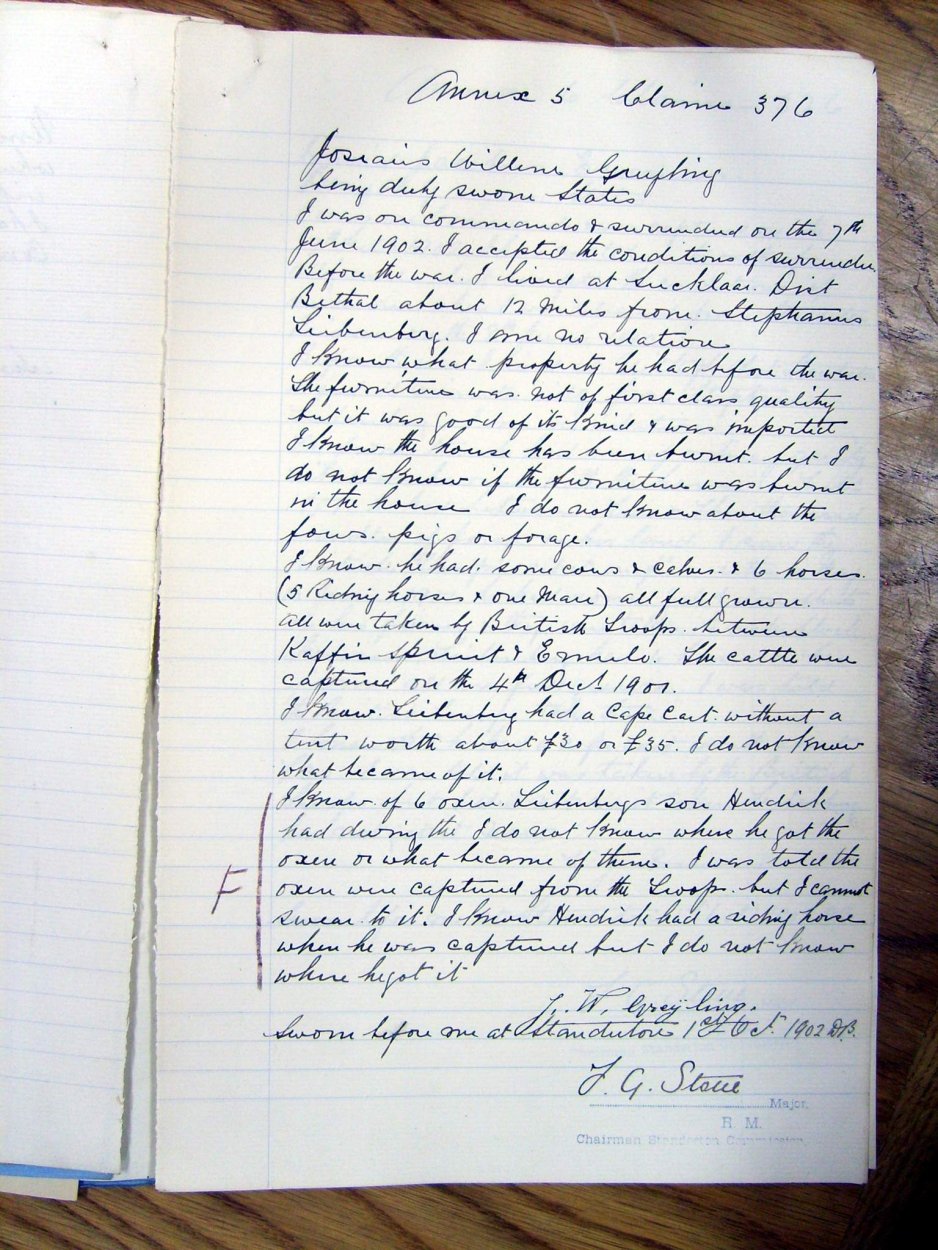 Annex 5 Claim 376
Josiais Willem Greyling
being duly sworn States
I was on commando & surrendered on the 7th
June 1902. I accepted the conditions of surrender.
Before the war. I lived at Dist
Bethal about 12 miles from. Stephanus
Leibenberg. I am no relation
I know what property he had before the war.
The furniture was not of first class quality
but it was good of its kind & was imported
I know the house has been burnt. but I
do not know if the furniture was burnt
in the house I do not know about the
fows. pigs or forage.
I know. he had. some cows & calves. & 6 horses.
(5 Riding horses & one Mare) all full grown.
all were taken by British Troops. between
Kaffir Spruit & Ermelo. The cattle were
captured on the 4th Dect 1901.
I know. Leibenberg had a Cape Cart. without a
tent worth about £30 or £35. I do not know
what became of it.
I know. of 6 oxen. Leibenbergs son Hendrick
had during the I do not know where he got the
oxen or what became of them. I was told the
oxen were captured from the Troops. but I cannot
swear to it. I know Hendrick had a riding horse
when he was captured but I do not know
where he got it
F
J. W. Greyling.
Sworn before me at Standerton 1st Oct. 1902 DB.
F. G. Steele
Major.
R. M.
Chairman Standerton Commission